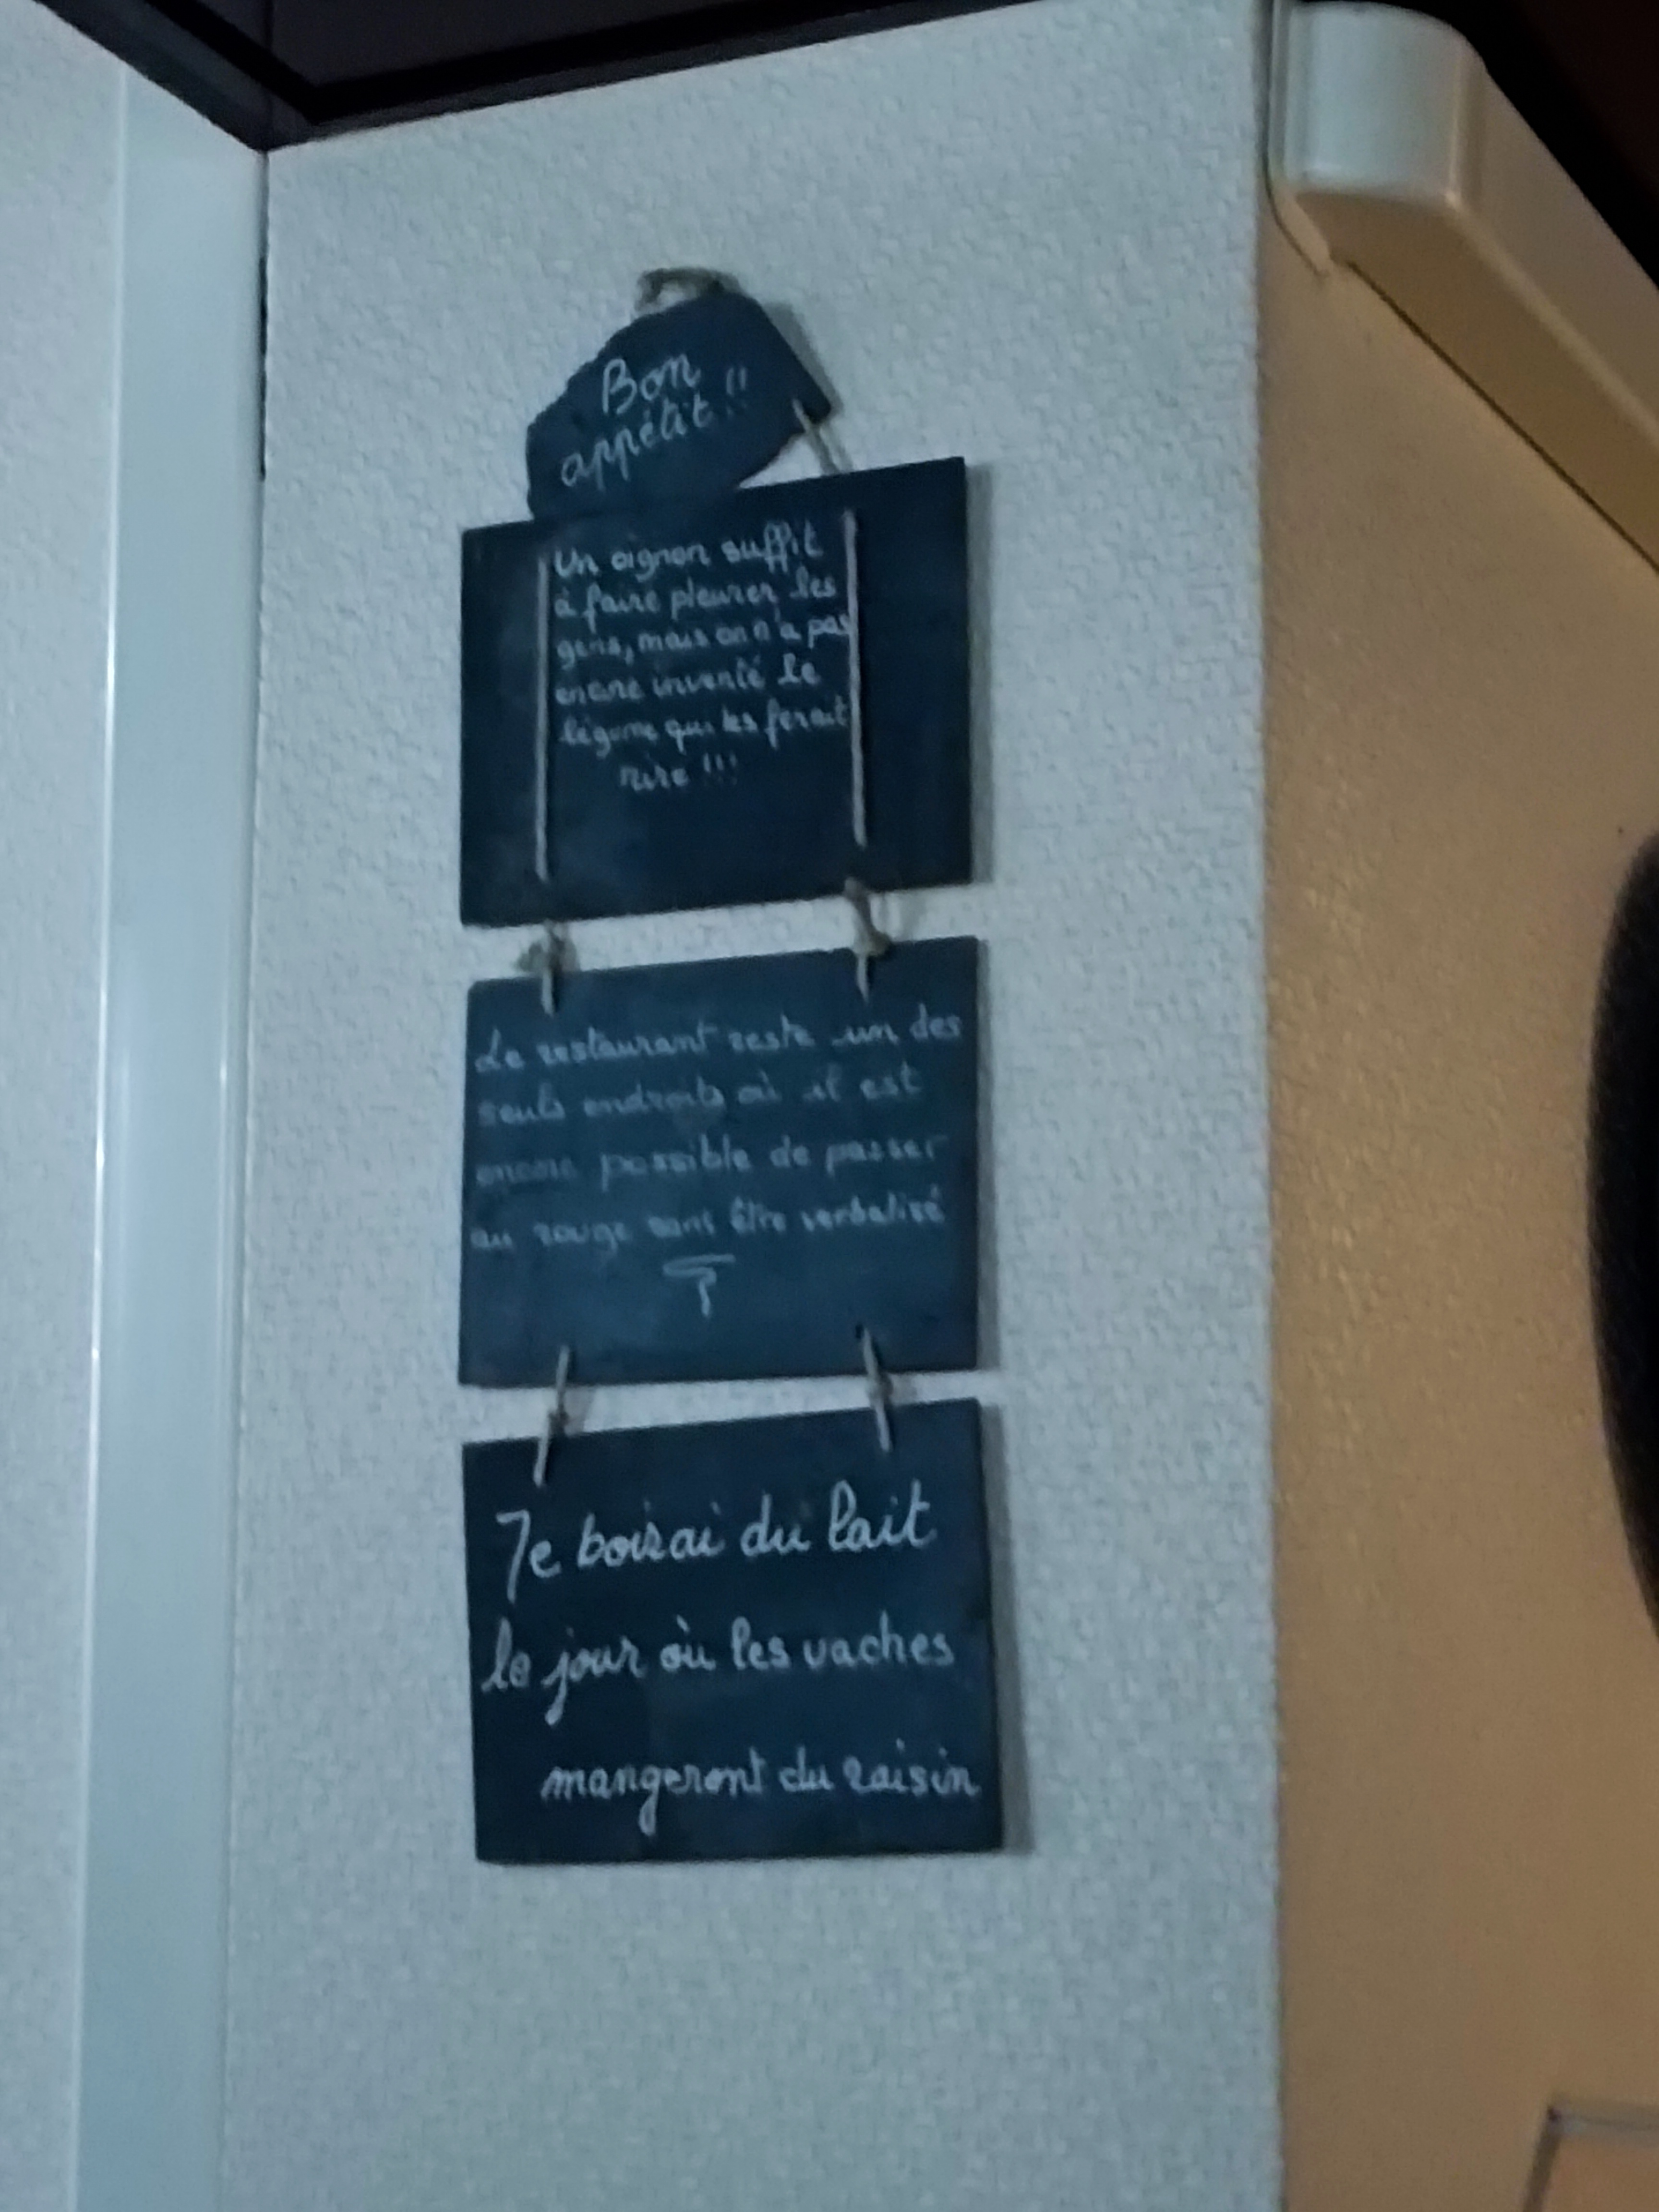 Bon
appétit !!
Un oignon suffit
à faire pleurer les
gens, mais on n'a pas
encore inventé le
légume qui les ferait
rire !!!
Le restaurant reste un des
seuls endroits où il est
encore possible de passer
au rouge sans être verbalisé
Je boirai du lait
le jour où les vaches
mangeront du raisin